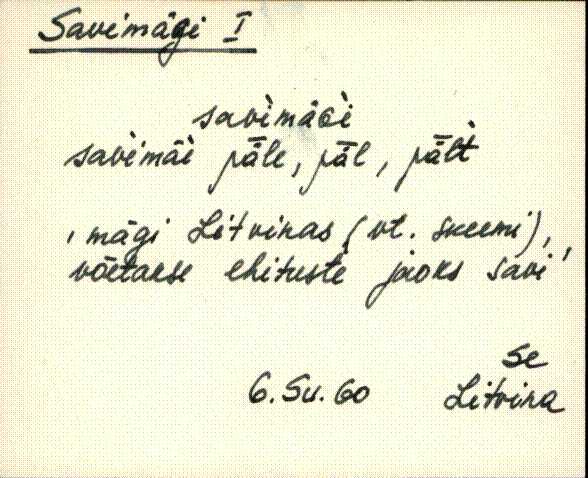 Savimägi I
savìmäGì
savìmäì pǟle, pǟl, pǟlt
, mägi Litvinas (vt. skeemi),
võetakse ehituste jaoks savi'
Se
6. Su. 60 Litvina